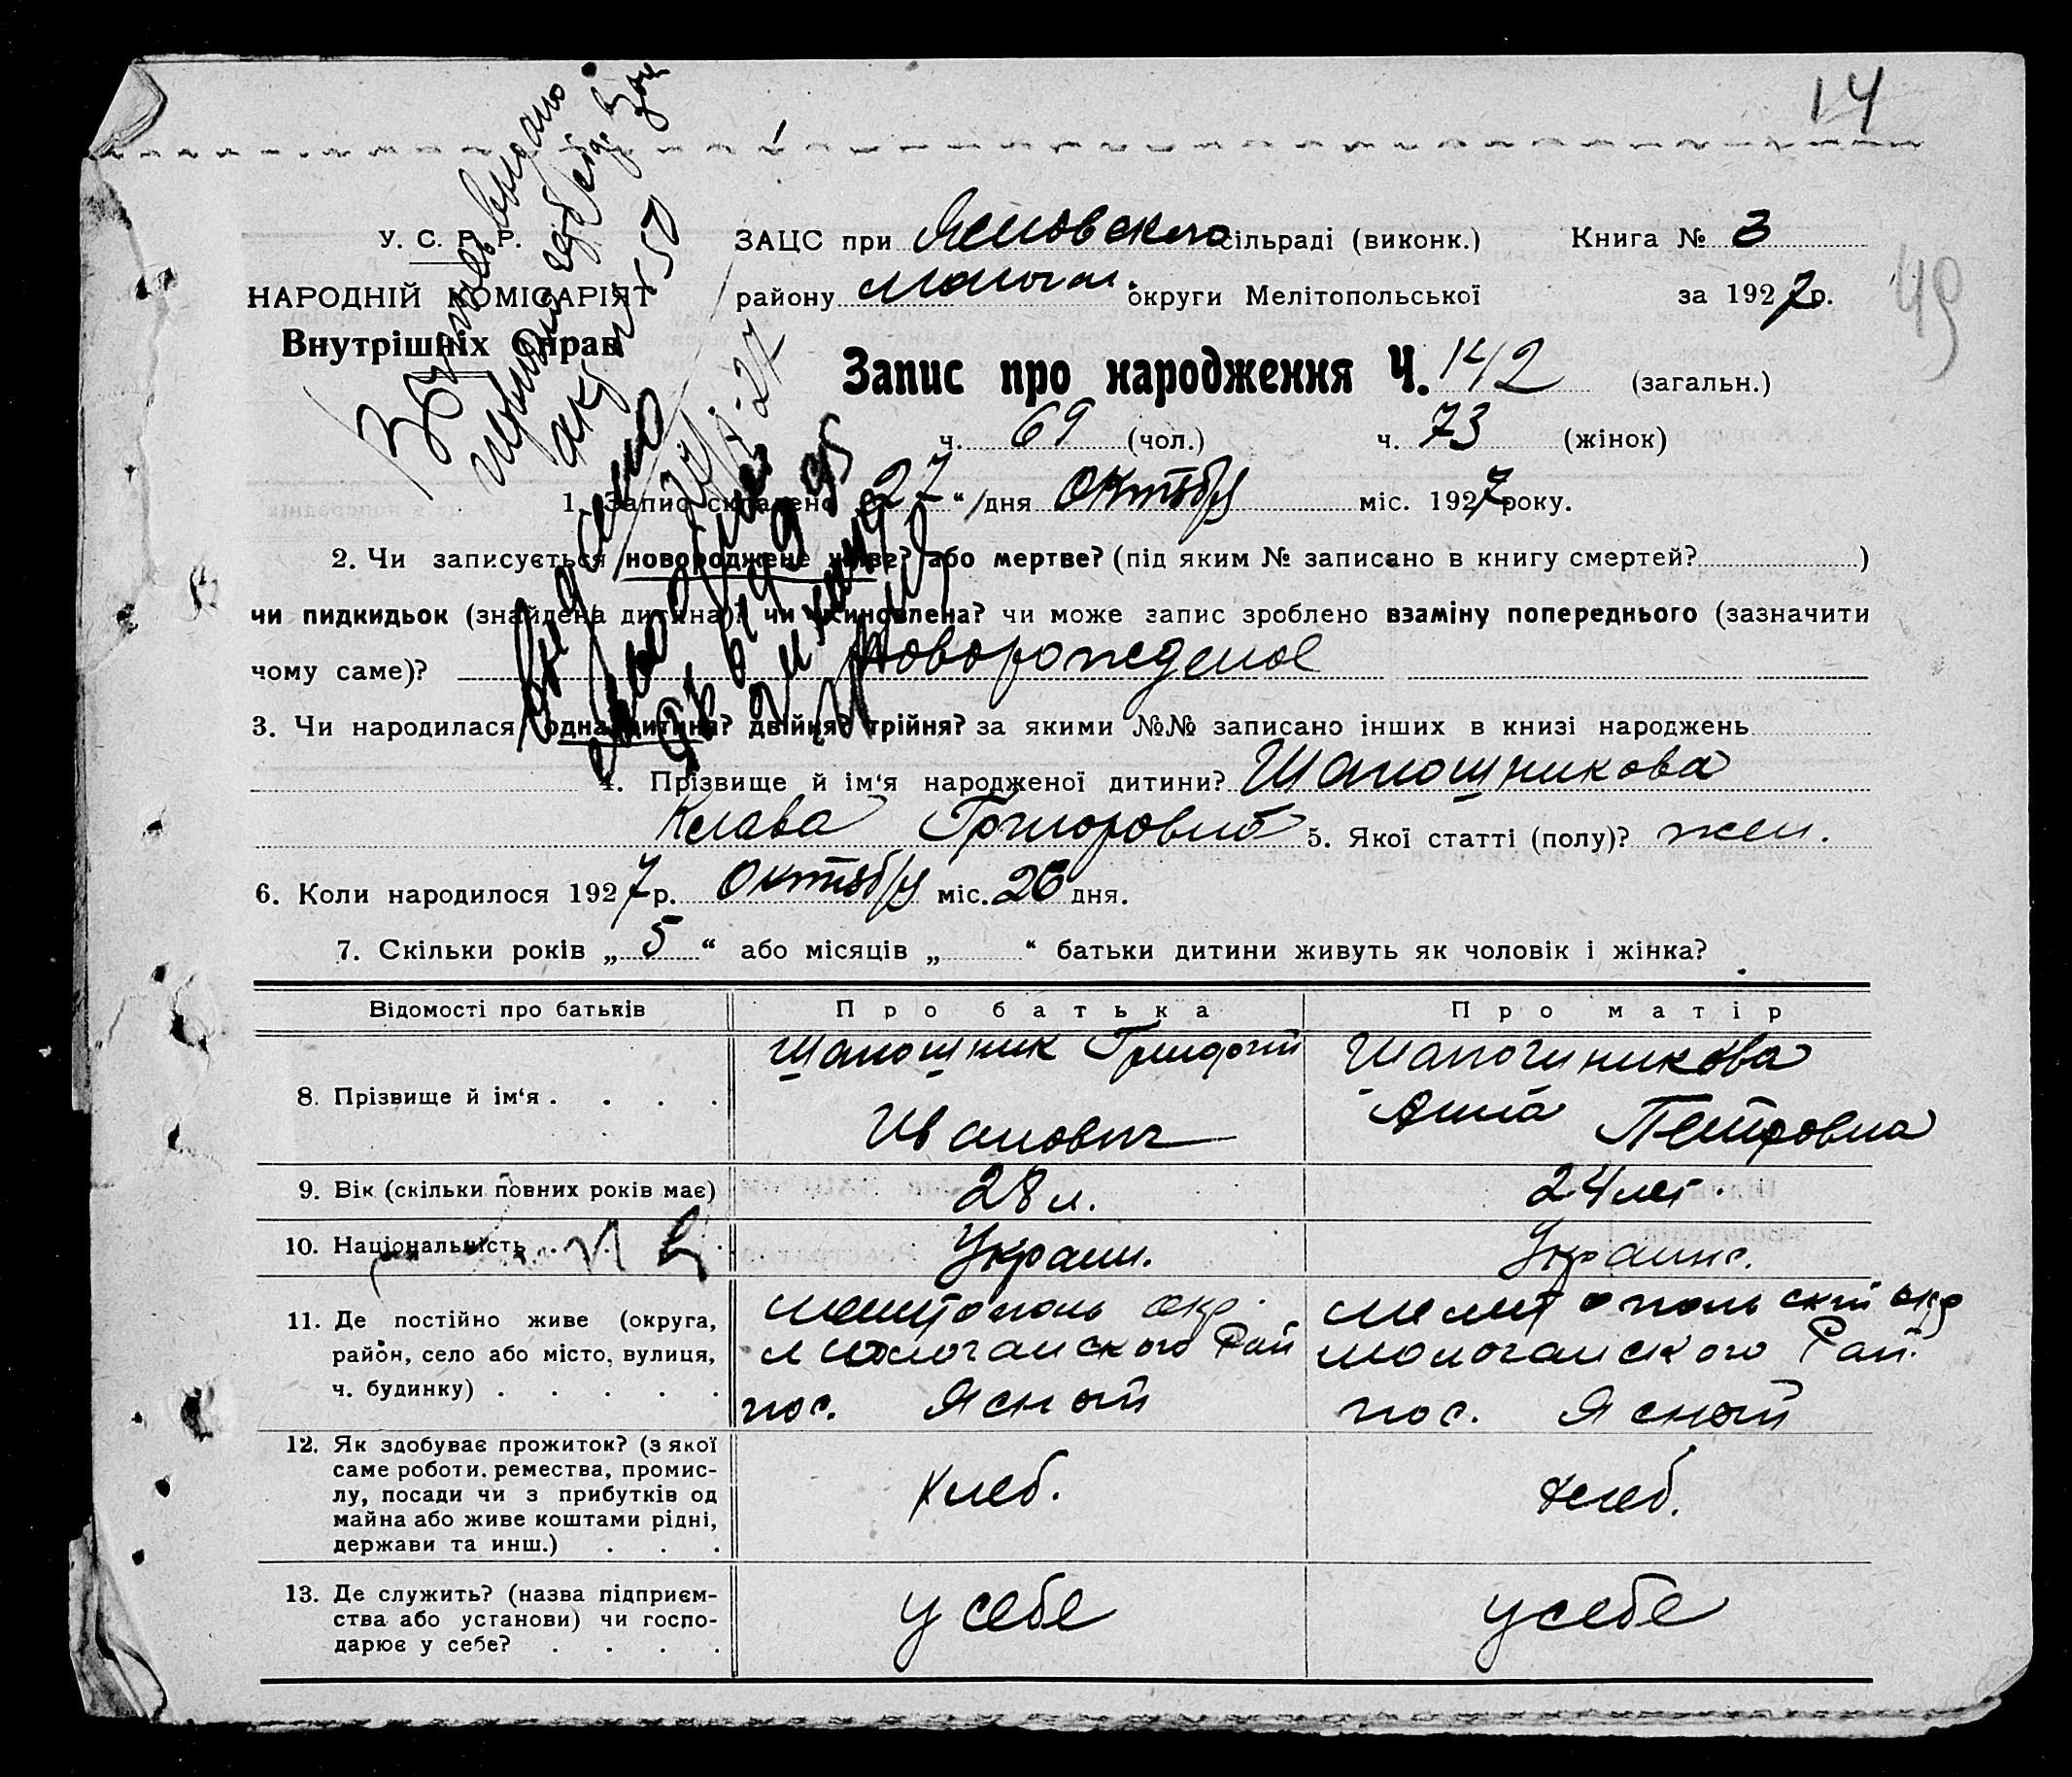 14
У. С. Р. Р.
НАРОДНІЙ КОМІСАРІЯТ
Внутрішніх Справ
ЗАЦС при Ясновского сільраді (виконк.) Книга № 3
району Молочан. округи Мелітопольської за 1927 р.
49
Запис про народження Ч. 142 (загальн.)
ч. 69 (чол.) ч. 73 (жінок)
1. Запис складено „27“ дня Октября міс. 1927 року.
2. Чи записується новороджене живе? або мертве? (під яким № записано в книгу смертей? )
чи пидкидьок (знайдена дитина)? чи усиновлена? чи може запис зроблено взаміну попереднього (зазначити
чому саме)? Новорожденое
3. Чи народилася одна дитина? двійня? трійня? за якими №№ записано інших в книзі народжень
4. Прізвище й ім‘я народженої дитини? Шапошникова
Клава Григоровна 5. Якої статті (полу)? жен.
6. Коли народилося 1927 р. Октября міс. 26 дня.
7. Скільки років „ 5 “ або місяців „ “ батьки дитини живуть як чоловік і жінка?
Відомості про батьків Про батька Про матір
8. Прізвище й ім‘я . . . . Шапошник Григорий Иванович Шапошникова Анна Петровна
9. Вік (скільки повних років має) 28 л. 24 лет.
10. Національність . . . Украин. Украинс.
11. Де постійно живе (округа,
район, село або місто, вулиця,
ч. будинку) . . . . .
Мелитополь окр.
Молочанского Рай
пос. Ясной
Мелитопольский окр
Молочанского Рай.
пос. Ясной
12. Як здобуває прожиток? (з якої
саме роботи, ремества, промис-
лу, посади чи з прибутків од
майна або живе коштами рідні,
держави та инш.) . . .
хлеб. хлеб.
13. Де служить? (назва підприєм-
ства або установи) чи госпо-
дарює у себе? . . . .
у себе у себе